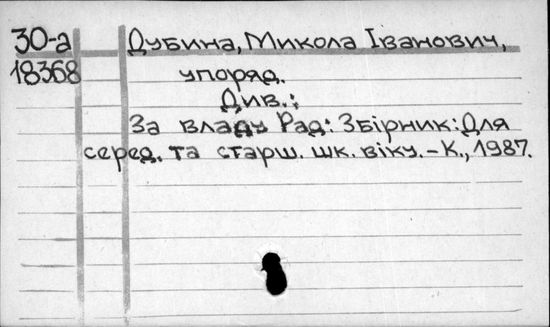 30-а Дубина, Микола Іванович,
18368 упоряд.
Див.:
За владу Рад: Збірник: Для
серед. та старш. шк. віку. – К., 1987.